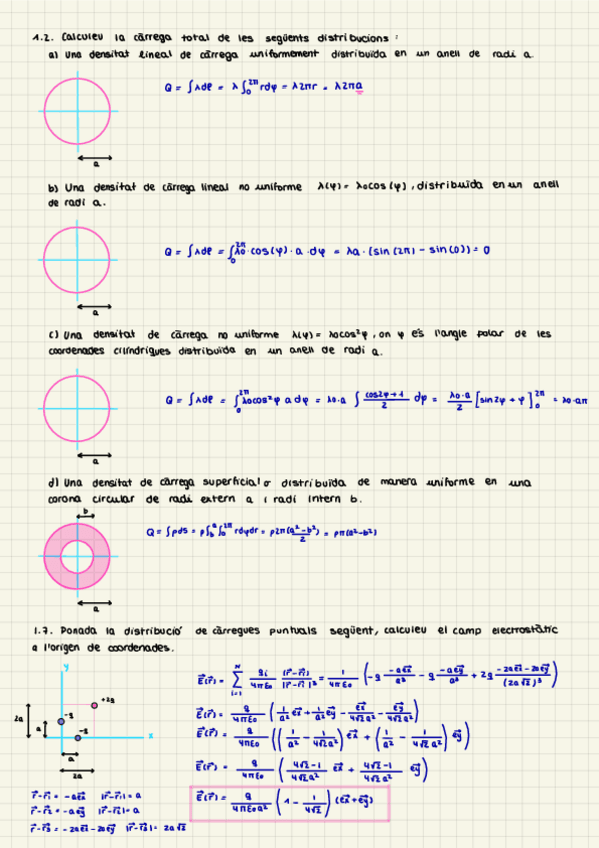 1.2. Calculeu la càrrega total de les següents distribucions:
a) Una densitat lineal de càrrega uniformement distribuida en un anell de radi a.
Q = ∫λdl = λ∫₀^2π rdφ = λ2πr = λ2πa
a
b) Una densitat de càrrega lineal no uniforme λ(φ) = λ₀cos(φ), distribuïda en un anell
de radi a.
Q = ∫λdl = ∫₀^2π λ₀·cos(φ)·a·dφ = λa·(sin(2π) - sin(0)) = 0
a
c) Una densitat de càrrega no uniforme λ(φ) = λ₀cos²φ, on φ és l'angle polar de les
coordenades cilíndrigues distribuïda en un anell de radi a.
Q = ∫λdl = ∫₀^2π λ₀cos²φ a dφ = λ₀·a ∫ (cos2φ+1)/2 dφ = λ₀·a/2 [sin2φ + φ]₀^2π = λ₀·aπ
a
d) Una densitat de càrrega superficial σ distribuïda de manera uniforme en una
corona circular de radi extern a i radi intern b.
b
Q = ∫ρds = ρ∫_b^a∫₀^2π rdφdr = ρ2π(a²-b²)/2 = ρπ(a²-b²)
a
1.7. Donada la distribució de càrregues puntuals següent, calculeu el camp electrostàtic
a l'origen de coordenades.
y
+2q
-q
-q
x
2a
a
a
2a
E⃗(r⃗) = Σ_{i=1}^N qi/4πε₀ (r⃗-r⃗i)/|r⃗-r⃗i|³ = 1/4πε₀ (-q -ae⃗x/a³ - q -ae⃗y/a³ + 2q (-2ae⃗x-2ae⃗y)/(2a√2)³)
E⃗(r⃗) = q/4πε₀ (1/a² e⃗x + 1/a² e⃗y - e⃗x/4√2a² - e⃗y/4√2a²)
E⃗(r⃗) = q/4πε₀ ((1/a² - 1/4√2a²) e⃗x + (1/a² - 1/4√2a²) e⃗y)
E⃗(r⃗) = q/4πε₀ (4√2-1/4√2a² e⃗x + 4√2-1/4√2a² e⃗y)
E⃗(r⃗) = q/4πε₀a² (1 - 1/4√2) (e⃗x+e⃗y)
r⃗-r⃗1 = -ae⃗x |r⃗-r⃗1| = a
r⃗-r⃗2 = -ae⃗y |r⃗-r⃗2| = a
r⃗-r⃗3 = -2ae⃗x-2ae⃗y |r⃗-r⃗3| = 2a√2